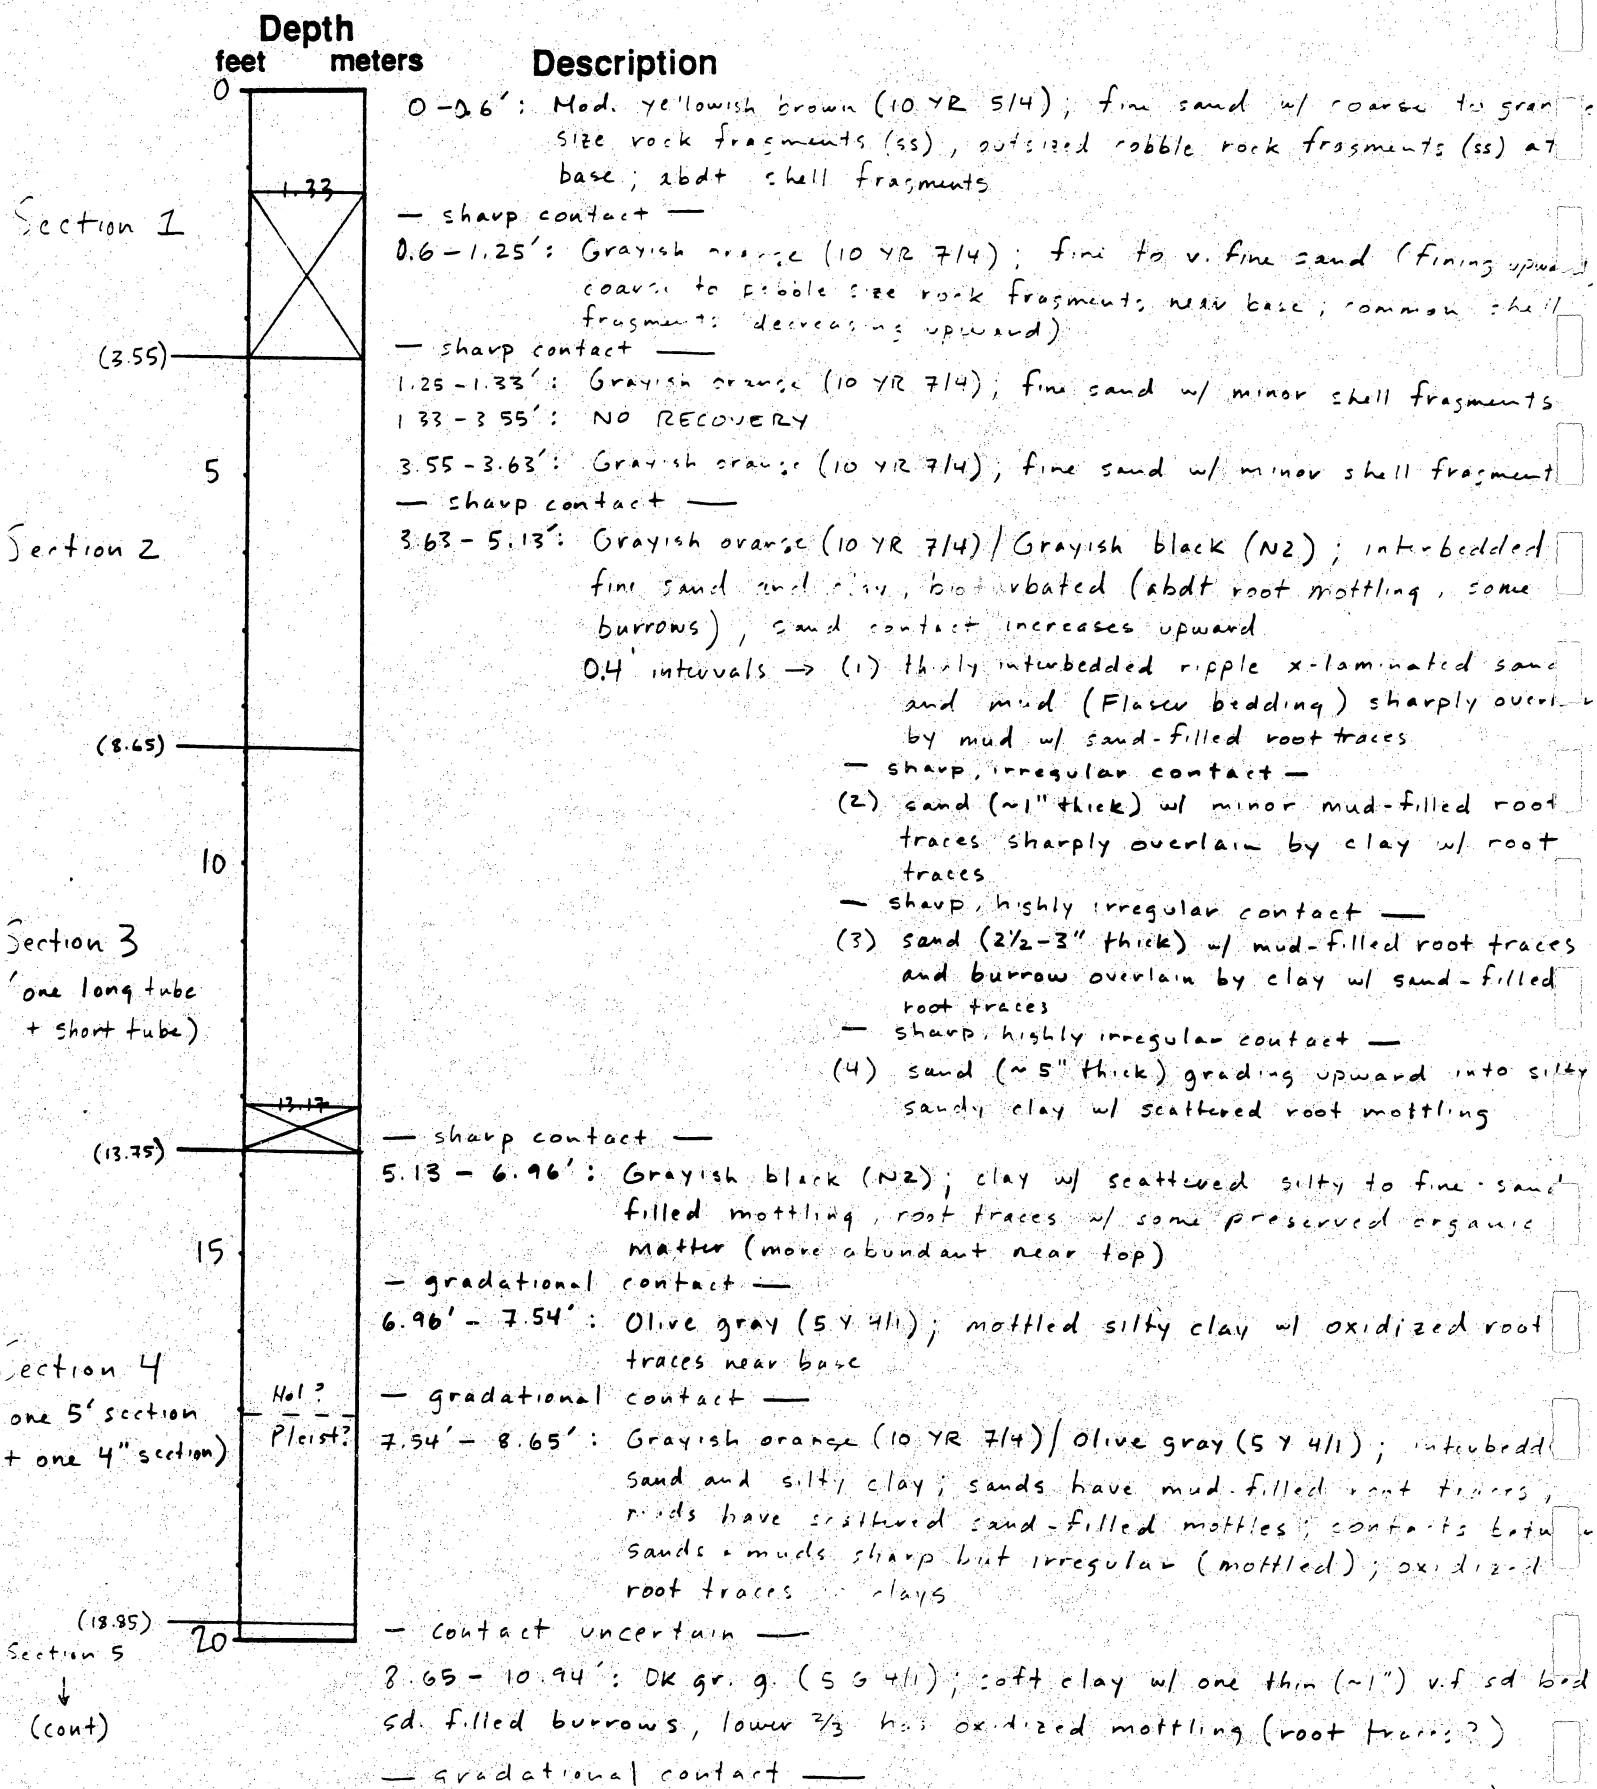 Depth
feet meters Description
0
0-0.6': Mod. yellowish brown (10 YR 5/4); fine sand w/ coarse to
size rock fragments (ss), outsized cobble rock fragments (ss) at
base; abdt shell fragments
1.33
— sharp contact —
Section 1
0.6-1.25': Grayish orange (10 YR 7/4); fine to v. fine sand (fining upward
coarse to pebble size rock fragments near base; common shell
fragments decreasing upward)
— sharp contact —
(3.55)
1.25-1.33': Grayish orange (10 YR 7/4); fine sand w/ minor shell fragments
1 33-3 55': NO RECOVERY
5
3.55-3.63': Grayish orange (10 YR 7/4); fine sand w/ minor shell fragment
— sharp contact —
Section 2
3.63-5.13': Grayish orange (10 YR 7/4)/Grayish black (N2); interbedded
fine sand and clay, bioturbated (abdt root mottling, some
burrows), sand contact increases upward
0.4' intervals → (1) thinly interbedded ripple x-laminated sand
and mud (Flaser bedding) sharply
by mud w/ sand-filled root traces
(8.65)
— sharp, irregular contact —
(2) sand (~1" thick) w/ minor mud-filled root
traces sharply overlain by clay w/ root
traces
10
— sharp, highly irregular contact —
Section 3
(3) sand (2½-3" thick) w/ mud-filled root traces
and burrow overlain by clay w/ sand-filled
root traces
one long tube
+ short tube)
— sharp, highly irregular contact —
(4) sand (~5" thick) grading upward into silty
sandy clay w/ scattered root mottling
13.17
— sharp contact —
(13.75)
5.13 - 6.96': Grayish black (N2); clay w/ scattered silty to fine-sand
filled mottling, root traces w/ some preserved organic
matter (more abundant near top)
15
— gradational contact —
6.96' - 7.54': Olive gray (5 Y 4/1); mottled silty clay w/ oxidized root
traces near base
Section 4
Hol?
— gradational contact —
one 5' section
+ one 4" section)
Pleist?
7.54' - 8.65': Grayish orange (10 YR 7/4)/Olive gray (5 Y 4/1); interbedd
sand and silty clay; sands have mud-filled root traces,
muds have scattered sand-filled mottles; contacts
sands + muds sharp but irregular (mottled); oxidized
root traces clays
(18.85)
20
— contact uncertain —
Section 5
↓
(cont)
8.65 - 10.94': Dk gr. g. (5 G 4/1); soft clay w/ one thin (~1") v.f sd bed
sd. filled burrows, lower 2/3 has oxidized mottling (root traces?)
— gradational contact —